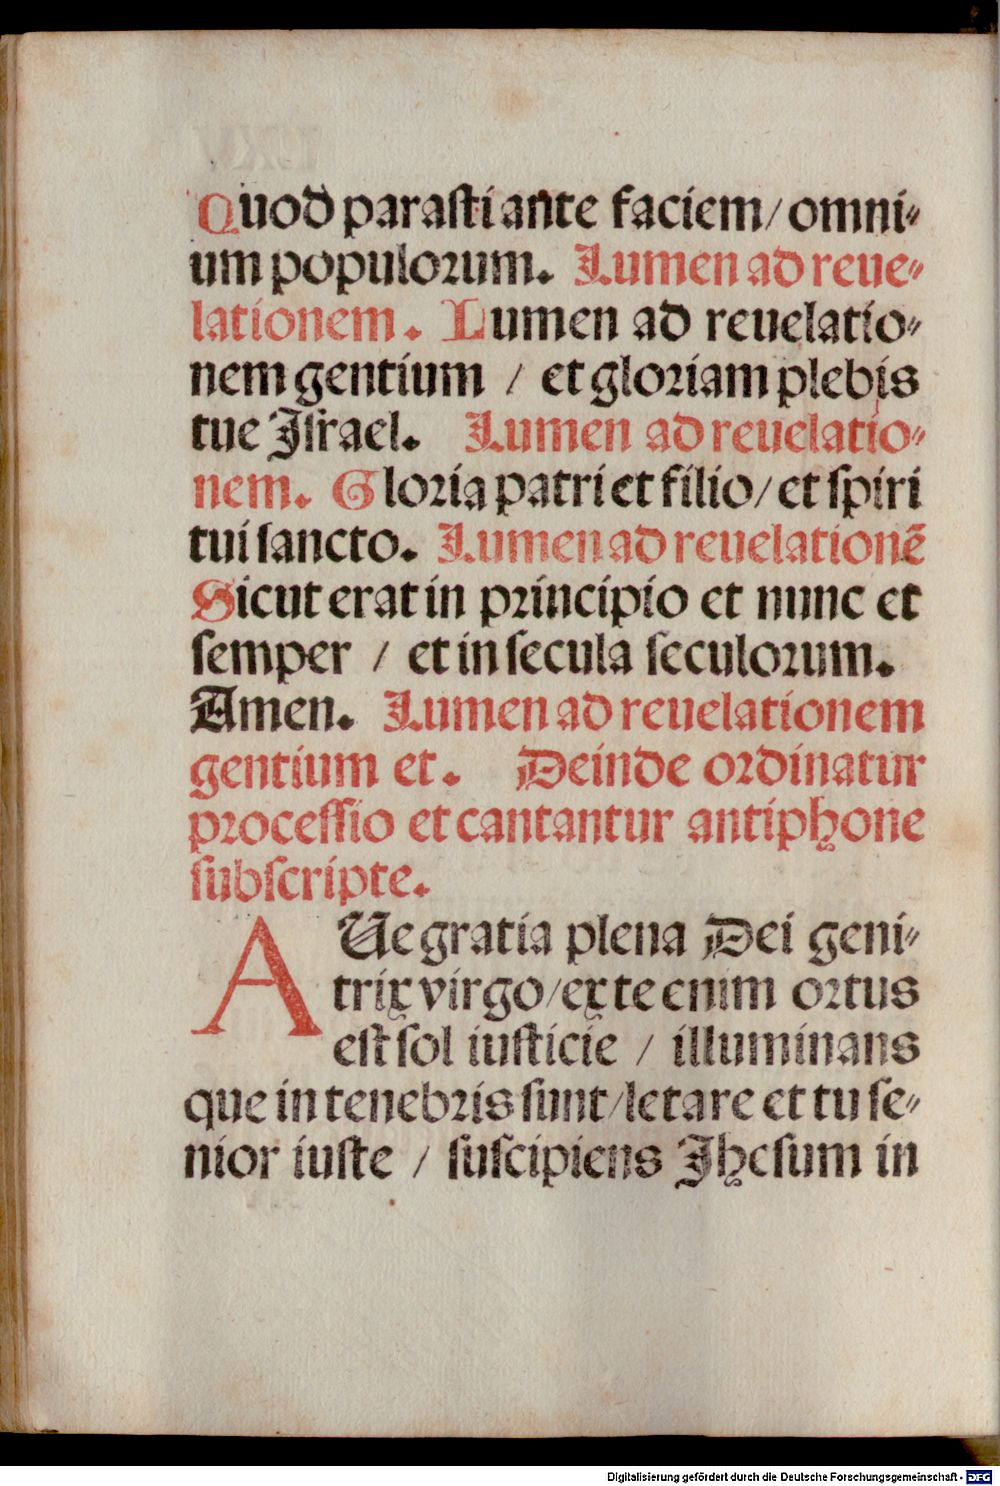 Quod parasti ante faciem/ omni⸗
um populorum. Lumen ad reue⸗
lationem. Lumen ad reuelatio⸗
nem gentium / et gloriam plebis
tue Israel. Lumen ad reuelatio⸗
nem. Gloria patri et filio/ et spiri
tui sancto. Lumen ad reuelationē
Sicut erat in principio et nunc et
semper / et in secula seculorum.
Amen. Lumen ad reuelationem
gentium et. Deinde ordinatur
processio et cantantur antiphone
subscripte.
AUe gratia plena Dei geni⸗
trix virgo/ex te enim ortus
est sol iusticie / illuminans
que in tenebris sunt/letare et tu se⸗
nior iuste / suscipiens Jhesum in
Digitalisierung gefördert durch die Deutsche Forschungsgemeinschaft - DFG